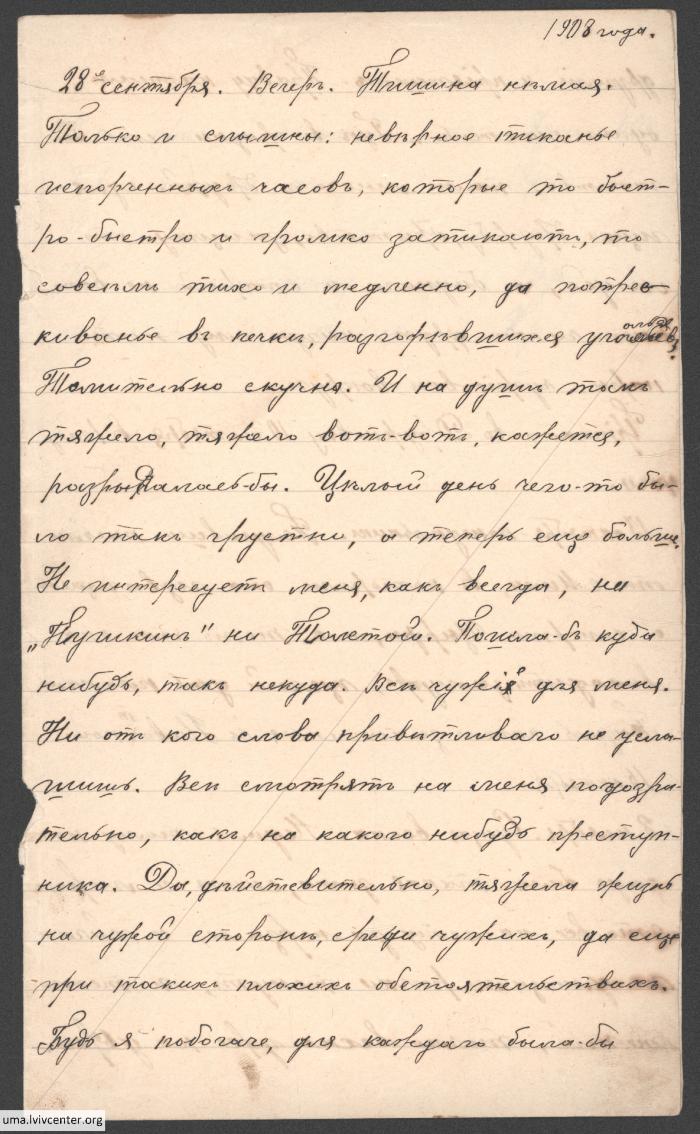 1908 года.
28е сентября. Вечеръ. Тишина нѣмая.
Только и слышны: невѣрное тиканье
испорченныхъ часовъ, которые то быст-
ро-быстро и громко затикаютъ, то
совсѣмъ тихо и медленно, да потрес-
киванье въ печкѣ, разгорѣвшихся угольевъ.
Томительно скучно. И на душѣ такъ
тяжело, тяжело вотъ-вотъ, кажется,
разрыдалась-бы. Цѣлый день чего-то бы-
ло такъ грустно, а теперь еще больше.
Не интересуетъ меня, какъ всегда, ни
„Пушкинъ" ни Толстой. Пошла-бъ куда
нибудь, такъ некуда. Всѣ чужіе для меня.
Ни отъ кого слова привѣтливаго не услы-
шишь. Всѣ смотрятъ на меня подозри-
тельно, какъ на какого нибудь преступ-
ника. Да, дѣйствительно, тяжела жизнь
на чужой сторонѣ, среди чужихъ, да еще
при такихъ плохихъ обстоятельствахъ.
Будь я побогаче, для каждаго была-бы
uma.lvivcenter.org